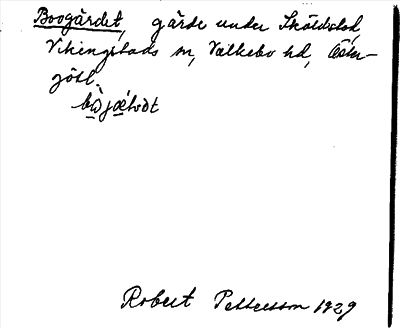 Boogärdet, gärde under Sköldstad,
Vikingstads sn, Valkebo hd, Öster-
götl.
Robert Pettersson 1929